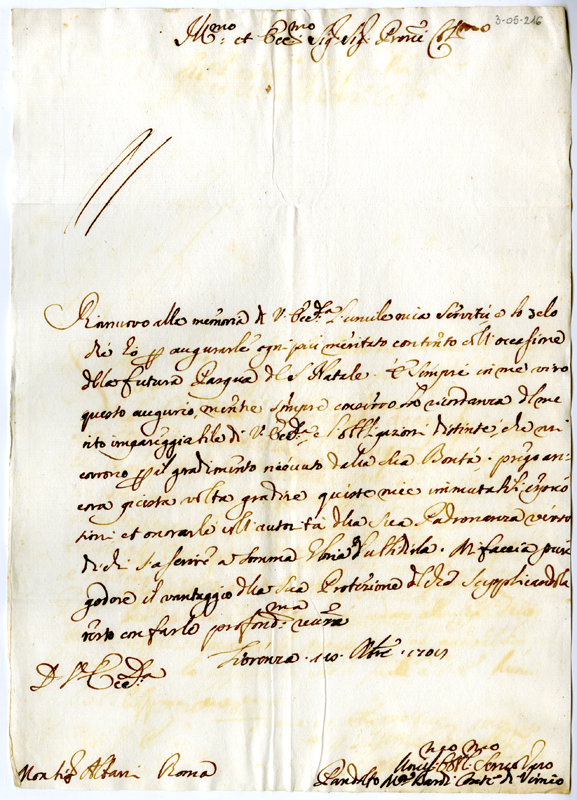 3-05-216
Ill.mo et Ecc.mo Sig. Sig. Prone Col.mo
Rinnuovo alla memoria di V. Ecc.za l'umile mia Servitù e lo zelo
che hò per augurarle ogni più meritato contento coll'occasione
della futura Pasqua del S. Natale. È sempre in me vivo
questo augurio, mentre sempre conservo la ricordanza del me
rito impareggiabile di V. Ecc.za e l'obbligazioni distinte, che mi
corrono per il gradimento ricevuto dalla sua Bontà. prego an
cora questa volta gradire queste mie immutabili espres
sioni et onorarle coll'autorità della sua Padronanza verso
di chi s'ascrive a somma gloria l'ubbidirla. Mi faccia pure
godere il vantaggio della sua Protezione del che supplicandola
resto con farle profond.ma river.a
Fiorenza. 10. Xbre. 170
D. V. Ecc.za
Umil. Obbl. Servo Vero
Monsig. Albani Roma
Pandolfo Bardi Conte di Vernio